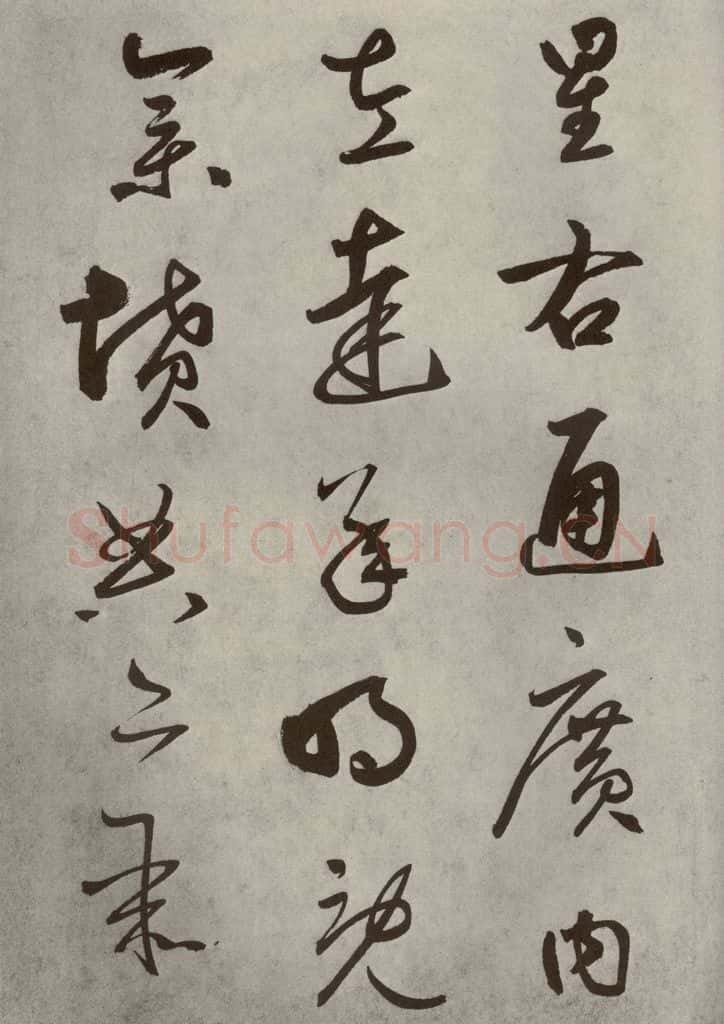 星右通廣内
左達承明既
集墳典亦聚
Shufawang.CN